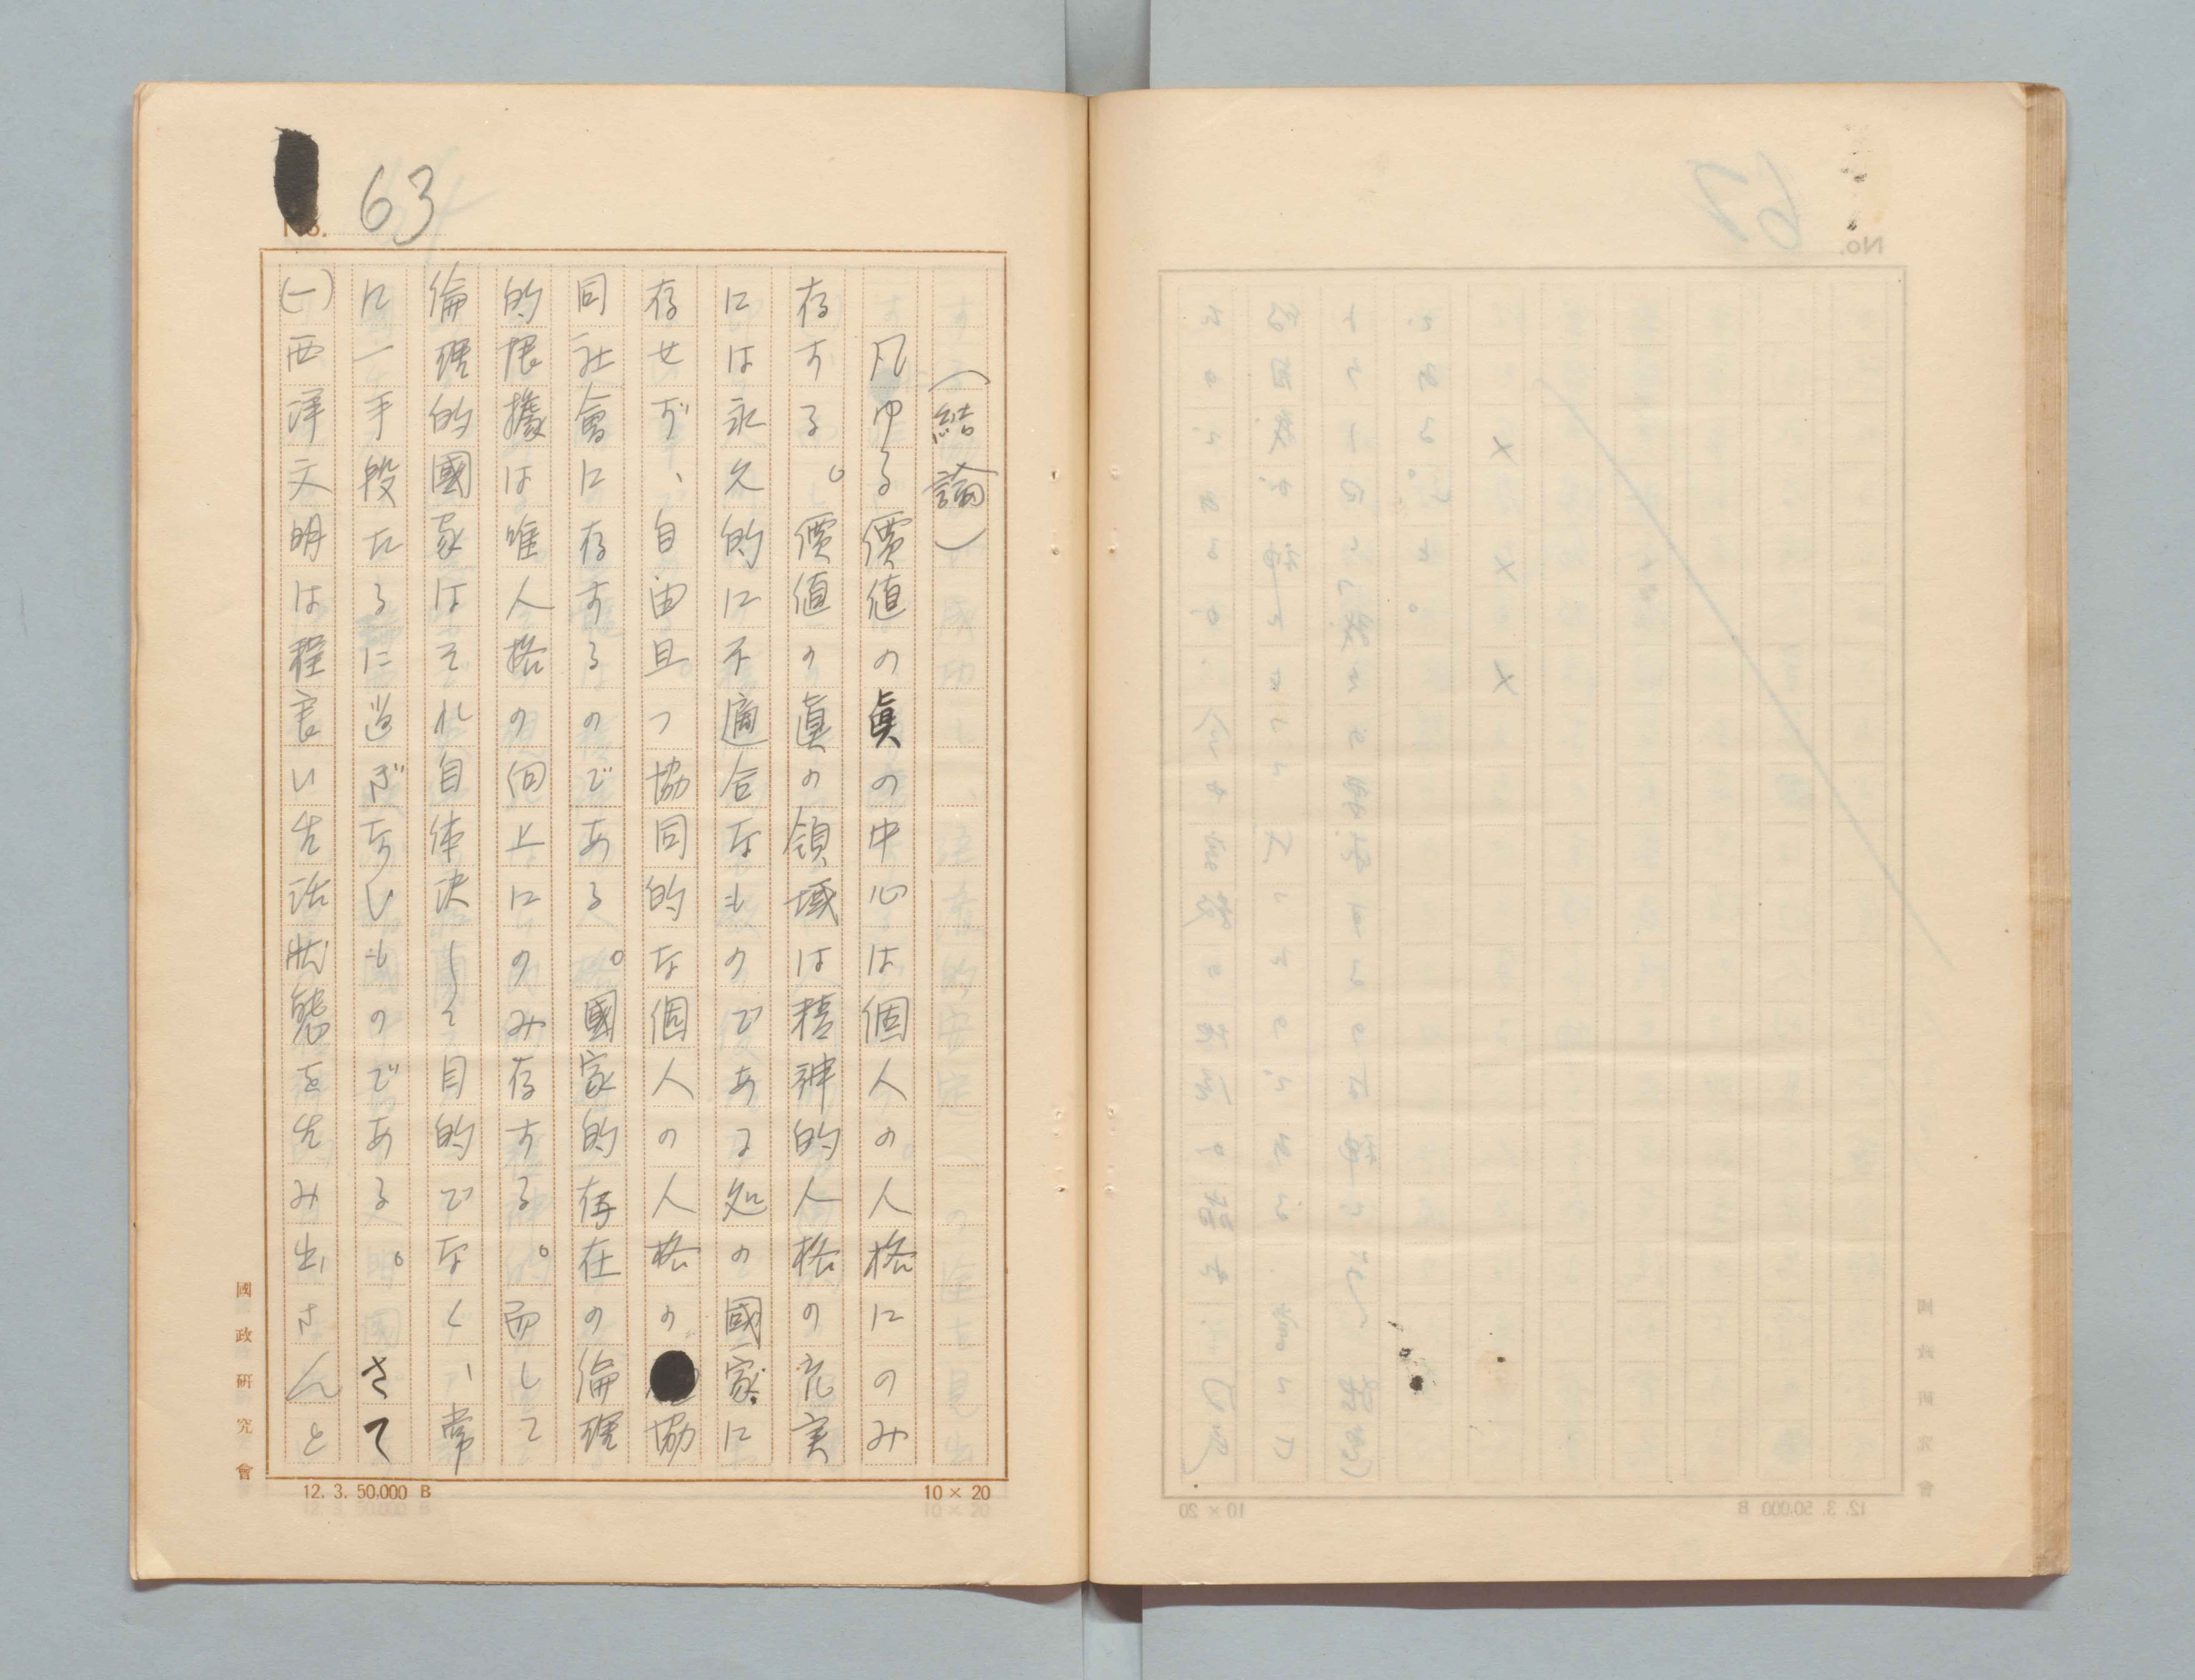 63
No.
(結論)
凡ゆる價値の眞の中心は個人の人格にのみ
存する。價値の眞の領域は精神的人格の充実
には永久的に不適合なものである処の國家に
存せず、自由且つ協同的な個人の人格の協
同社會に存するのである。國家的存在の倫理
的根據は唯人格の向上にのみ存する。而して
倫理的國家はそれ自体決して目的でなく、常
に一手段たるに過ぎないものである。さて
(一)西洋文明は程良い生活狀態を生み出さんと
國政研究會
12. 3. 50,000 B
10 × 20